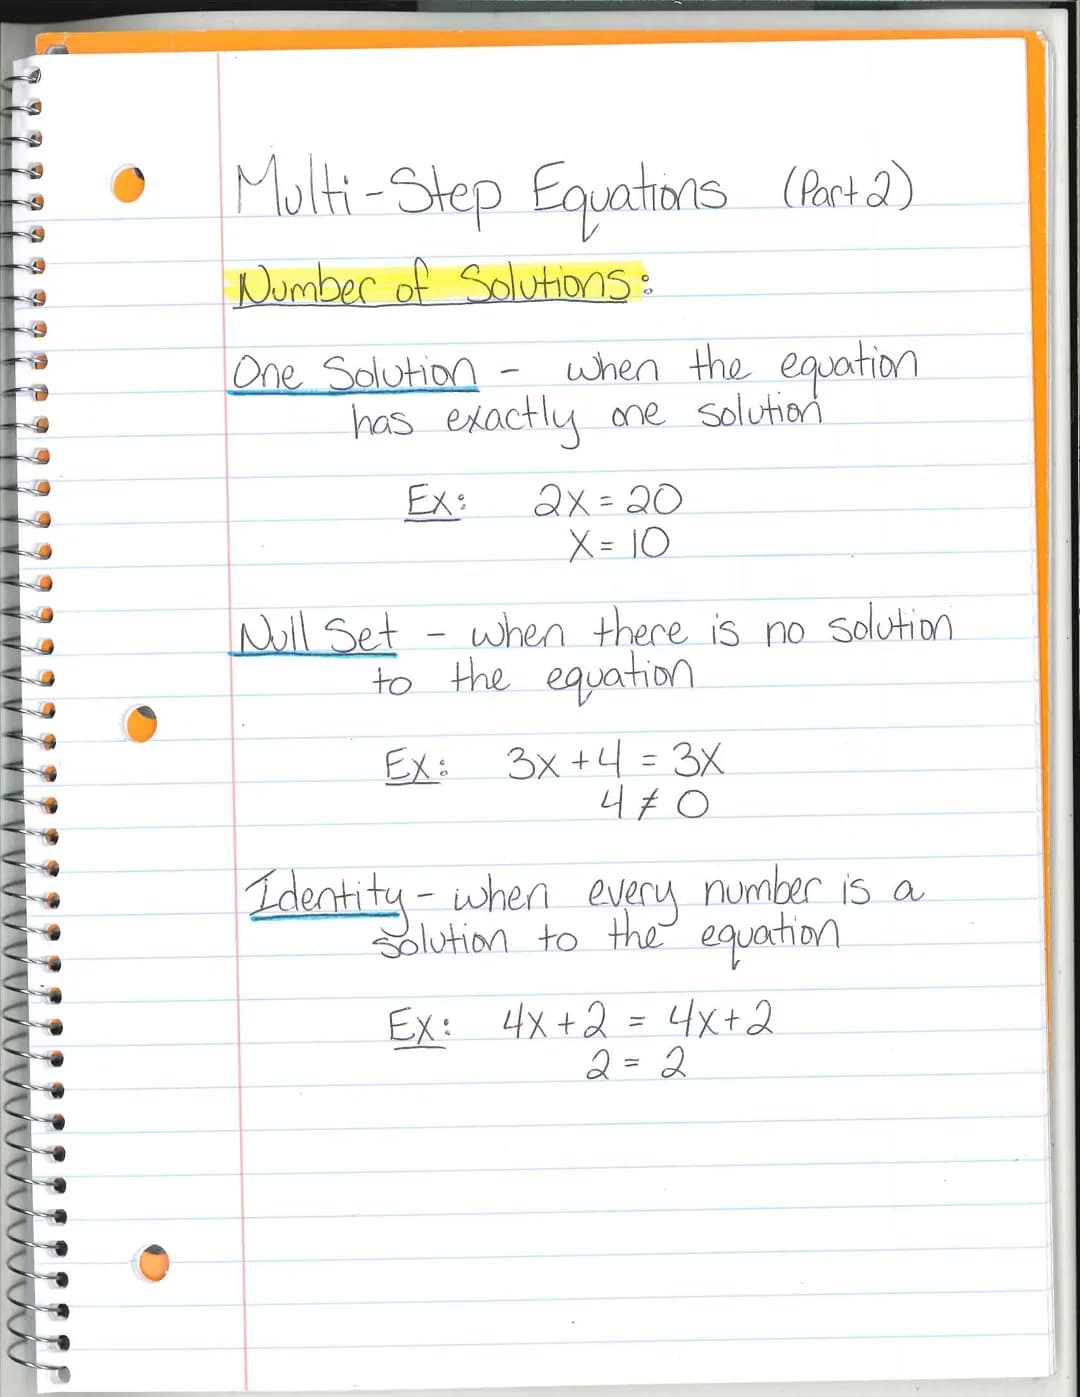 Multi-Step Equations (Part 2)
Number of Solutions:
One Solution - when the equation
has exactly one solution
Ex: 2x = 20
x = 10
Null Set - when there is no solution
to the equation
Ex: 3x + 4 = 3x
4 ≠ 0
Identity - when every number is a
solution to the equation
Ex: 4x + 2 = 4x + 2
2 = 2